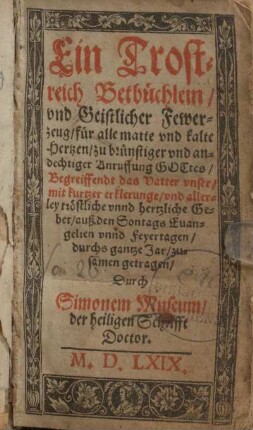 Ein Trost-
reich Betbüchlein /
vnd Geistlicher Fewer-
zeug / für alle matte vnd kalte
Hertzen / zu brünstiger vnd an-
dechtiger Anruffung GOTtes /
Begreiffendt das Vatter vnser /
mit kurtzer erklerunge / vnd aller-
ley tröstliche vnnd hertzliche Ge-
bet / außden Sontags Euan-
gelien vnnd Feyertagen /
durchs gantze Jar / zu-
samen getragen /
Durch
Simonem Museum /
der heiligen Schrifft
Doctor.
M. D. LXIX.